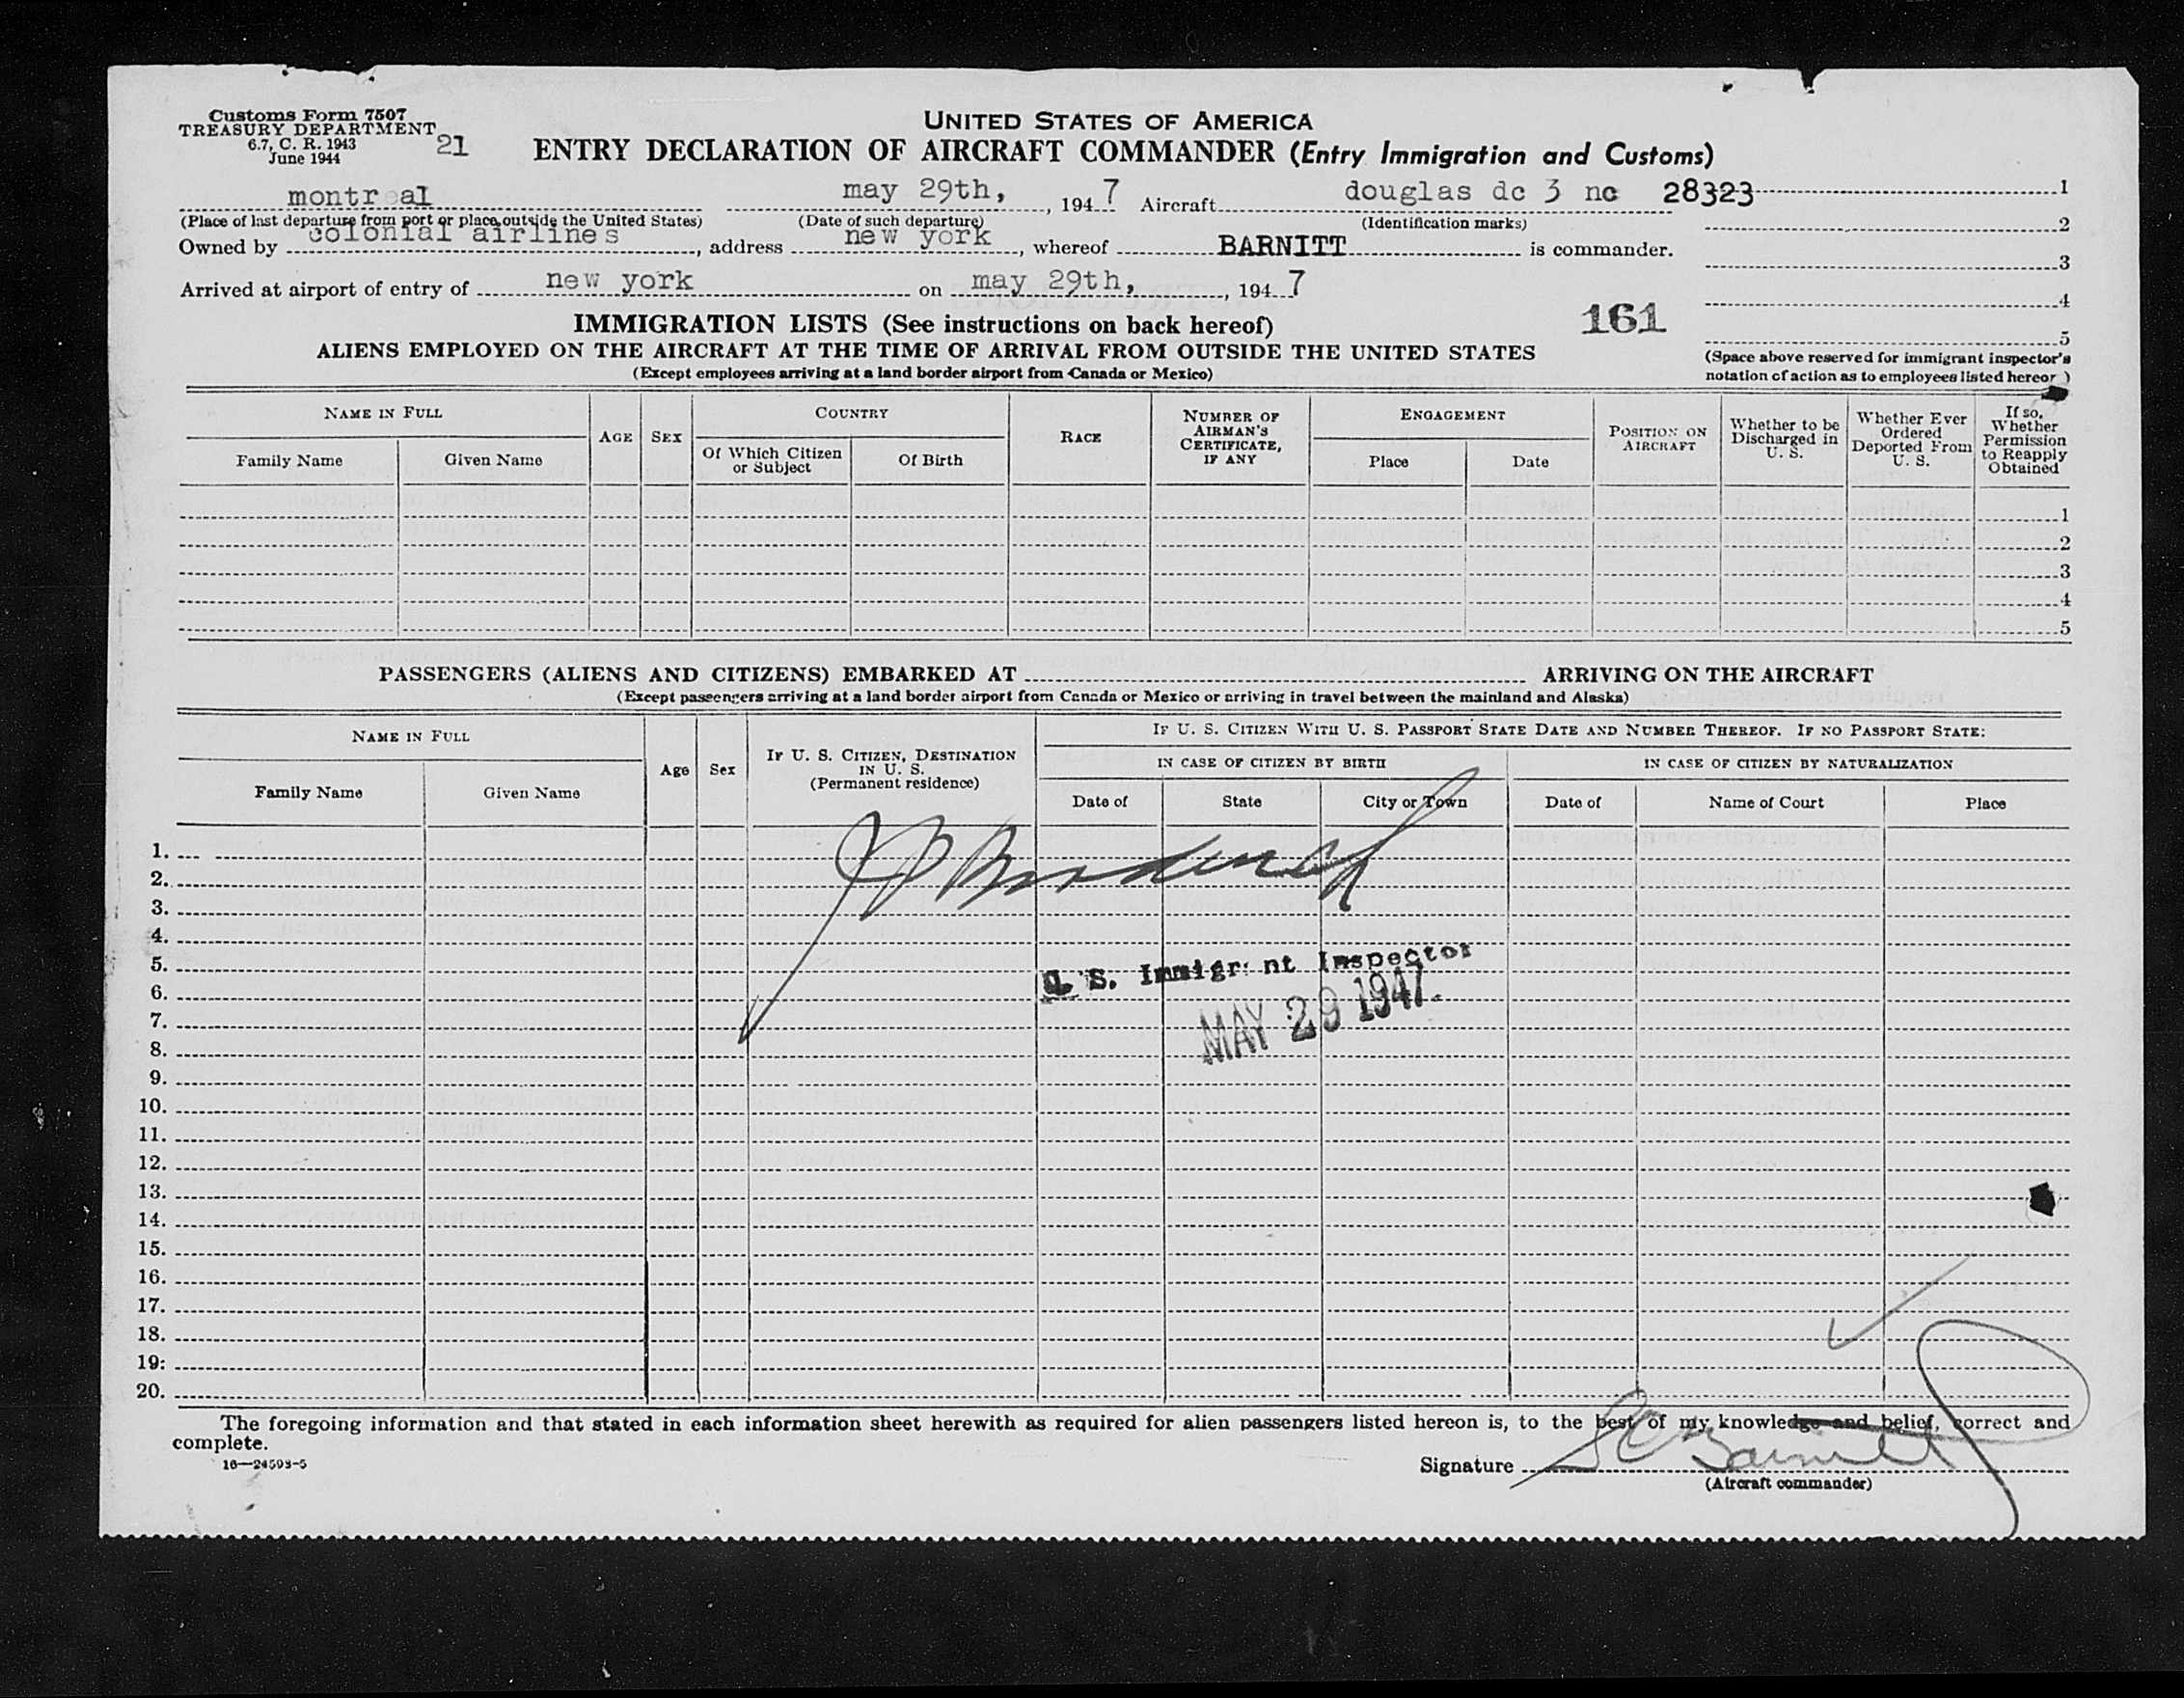 Customs Form 7507
TREASURY DEPARTMENT
6.7, C. R. 1943
June 1944
21
UNITED STATES OF AMERICA
ENTRY DECLARATION OF AIRCRAFT COMMANDER (Entry Immigration and Customs)
montreal may 29th, 1947 Aircraft douglas dc 3 nc 28323 1
(Place of last departure from port or place outside the United States) (Date of such departure) (Identification marks) 2
Owned by colonial airlines, address new york, whereof BARNITT is commander.
3
Arrived at airport of entry of new york on may 29th, 1947
4
IMMIGRATION LISTS (See instructions on back hereof) 161
5
ALIENS EMPLOYED ON THE AIRCRAFT AT THE TIME OF ARRIVAL FROM OUTSIDE THE UNITED STATES
(Except employees arriving at a land border airport from Canada or Mexico)
(Space above reserved for immigrant inspector's
notation of action as to employees listed hereon)
NAME IN FULL
Family Name Given Name
AGE SEX
COUNTRY
Of Which Citizen
or Subject
Of Birth
RACE
NUMBER OF
AIRMAN'S
CERTIFICATE,
IF ANY
ENGAGEMENT
Place Date
POSITION ON
AIRCRAFT
Whether to be
Discharged in
U. S.
Whether Ever
Ordered
Deported From
U. S.
If so,
Whether
Permission
to Reapply
Obtained
1
2
3
4
5
PASSENGERS (ALIENS AND CITIZENS) EMBARKED AT ARRIVING ON THE AIRCRAFT
(Except passengers arriving at a land border airport from Canada or Mexico or arriving in travel between the mainland and Alaska)
NAME IN FULL
Family Name Given Name
Age Sex
IF U. S. CITIZEN, DESTINATION
IN U. S.
(Permanent residence)
IF U. S. CITIZEN WITH U. S. PASSPORT STATE DATE AND NUMBER THEREOF. IF NO PASSPORT STATE:
IN CASE OF CITIZEN BY BIRTH IN CASE OF CITIZEN BY NATURALIZATION
Date of State City or Town Date of Name of Court Place
1.
2.
3.
4.
5.
U. S. Immigrant Inspector
6.
MAY 29 1947
7.
8.
9.
10.
11.
12.
13.
14.
15.
16.
17.
18.
19.
20.
The foregoing information and that stated in each information sheet herewith as required for alien passengers listed hereon is, to the best of my knowledge and belief, correct and
complete.
16—24593-5
Signature Barnitt
(Aircraft commander)